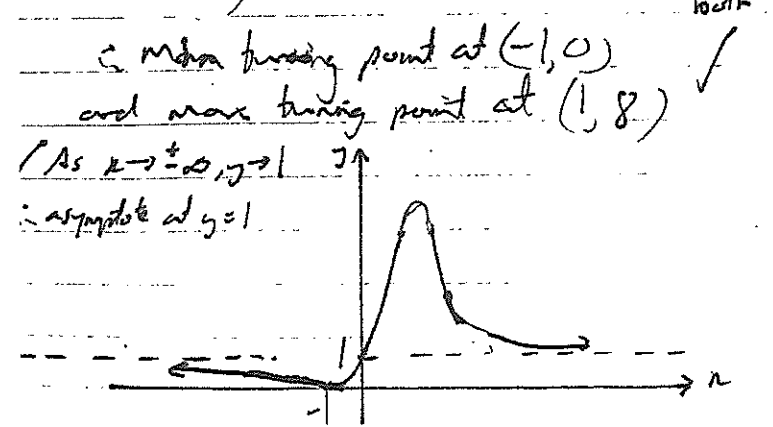 ∴ Min turning point at (-1, 0)
and max turning point at (1, 8) ✓
As x → ±∞, y → 1
∴ asymptote at y = 1
y
1
x
-1